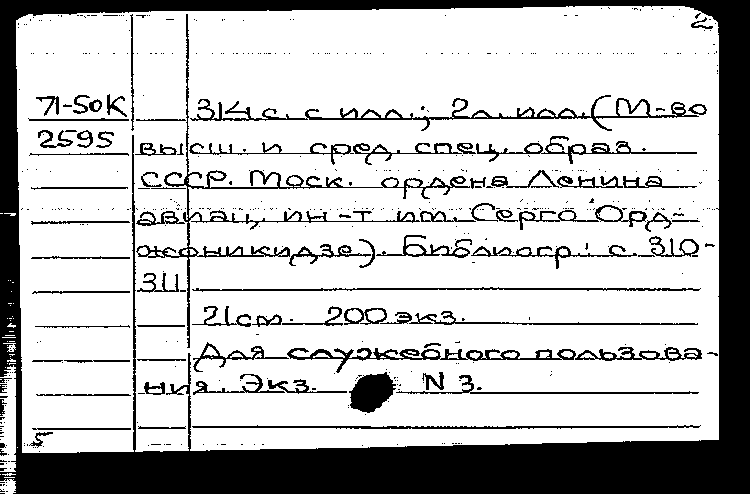 2
71-50К 314 с. с илл.; 2 л. илл. (М-во
2595 высш. и сред. спец. образ.
СССР. Моск. ордена Ленина
авиац. ин-т им. Серго Орд-
жоникидзе). Библиогр.: с. 310-
311
21 см. 200 экз.
Для служебного пользова-
ния. Экз. N 3.
5